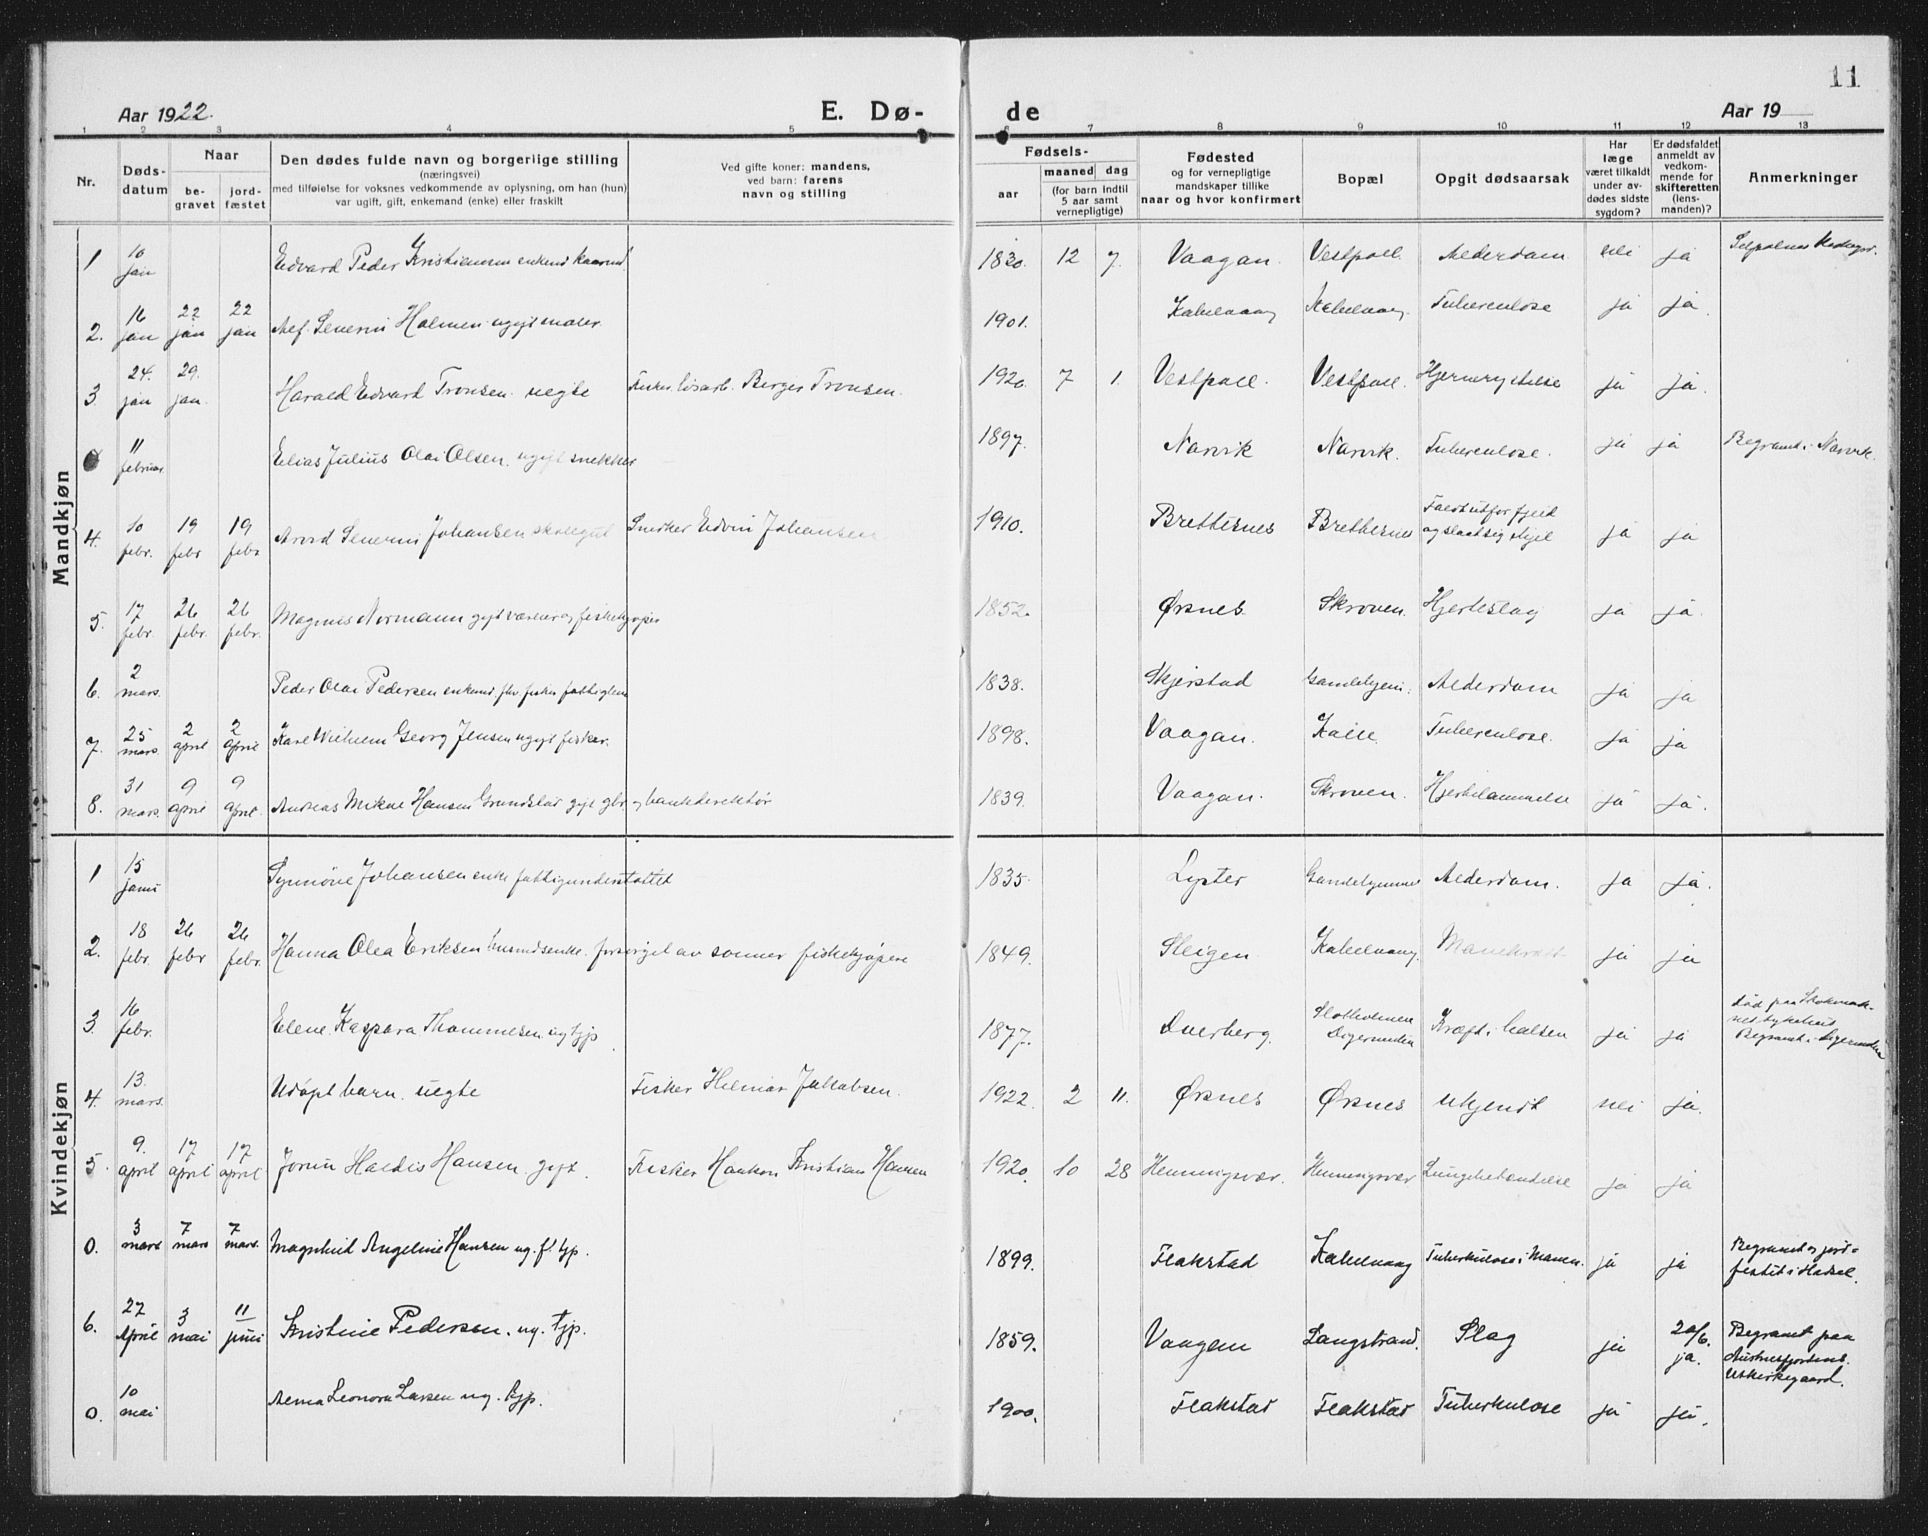 11
Aar 1922. E. Dø- de Aar 19
1 2 3 4 5 6 7 8 9 10 11 12 13
Nr. Døds-datum Naar be-gravet jord-fæstet Den dødes fulde navn og borgerlige stilling (næringsvei) med tilføielse for voksnes vedkommende av oplysning, om han (hun) var ugift, gift, enkemand (enke) eller fraskilt Ved gifte koner: mandens, ved barn: farens navn og stilling Fødsels- aar maaned dag (for barn indtil 5 aar samt vernepligtige) Fødested og for vernepligtige mandskaper tillike naar og hvor konfirmert Bopæl Opgit dødsaarsak Har læge været tilkaldt under av-dødes sidste sygdom? Er dødsfaldet anmeldt av vedkom-mende for skifteretten (lens-manden)? Anmerkninger
Mandkjøn
1 10 jan Edvard Peder Kristiansen enkemd kaarmd. 1830. 12 7. Vaagan. Vestpoll. Alderdom nei ja
2. 16 jan 22 jan 22 jan Alf Severin Holmen ugift maler 1901. Kabelvaag Kabelvaag. Tuberculose ja ja.
3. 24. jan 29. jan. Harald Edvard Tronsen. uegte Fisker løsarb. Berger Tronsen. 1920. 7 1. Vestpoll. Vestpoll. Hjernerystelse ja ja.
0 11 februar. Elias Julius Olai Olsen. ugift snekker 1897. Narvik Narvik. Tuberculose. ja ja Begravet i Narvik.
4. 10 febr. 19 febr 19 febr Arvid Severin Johansen skolegut Snekker Edvin Johansen 1910. Brettesnes Brettesnes Faldt utfor fjeld og slaat sig ihjel ja ja
5. 17 febr. 26 febr. 26 febr. Magnus Normann gift væreier og fiskekjøper 1852. Ørsnes. Skroven. Hjerteslag ja ja.
6. 2 mars. Peder Olai Pedersen enkemd. fhv. fisker fattiglem 1838. Skjerstad Gamlehjem. Alderdom ja ja
7. 25 mars. 2 april 2 april Karl Wilhelm Georg Jensen ugift fisker. 1898. Vaagan. Kalle. Tuberculose. ja ja
8. 31 mars. 9 april 9 april. Andreas Mikal Hansen Grundstad gift gbr. og bankdirektør 1839. Vaagan. Skroven. Hjertelammelse ja ja.
Kvindekjøn
1 15 Synnøve Johansen enke fattigunderstøttet 1835. Lyster Gamlehjemmet Alderdom. ja ja.
2. 18 febr. 26 febr 26 febr. Hanna Olea Eriksen husmdsenke. forsørget av sønner fiskekjøpere 1849. Steigen Kabelvaag. Mavekræft ja ja
3. 16 febr. Elene Kaspara Thommesen ug tjp 1877. Dverberg. Slotholmen Digermulen Kræft i halsen ja ja død paa Stokmark-nes sykehus Begravet i Digermulen
4. 13. mars. Udøpt barn. uegte Fisker Hilmar Jakobsen. 1922. 2 11. Ørsnes Ørsnes ukjendt nei ja.
5. 9. april 17 april 17 april Jorun Haldis Hansen. gift. Fisker Haakon Kristian Hansen 1920. 10 28 Henningsvær. Henningsvær Lungebetændelse ja ja
0. 3 mars 7 mars 7 mars. Magnhild Angeline Hansen ug. f. tjp. 1899. Flakstad Kabelvaag Tuberkulose i Maven. ja ja Begravet og jord-festet i Hadsel.
6. 27 April 3 mai 11 juni Kristine Pedersen. ug. tjp. 1859. Vaagan Langstrand. Slag ja 20/6. ja. Begravet paa Austnesfjordens. Uskirkegaard.
0. 10 mai Alma Leonora Larsen ug. tjp. 1900. Flakstad Flakstad Tuberkulose ja ja.